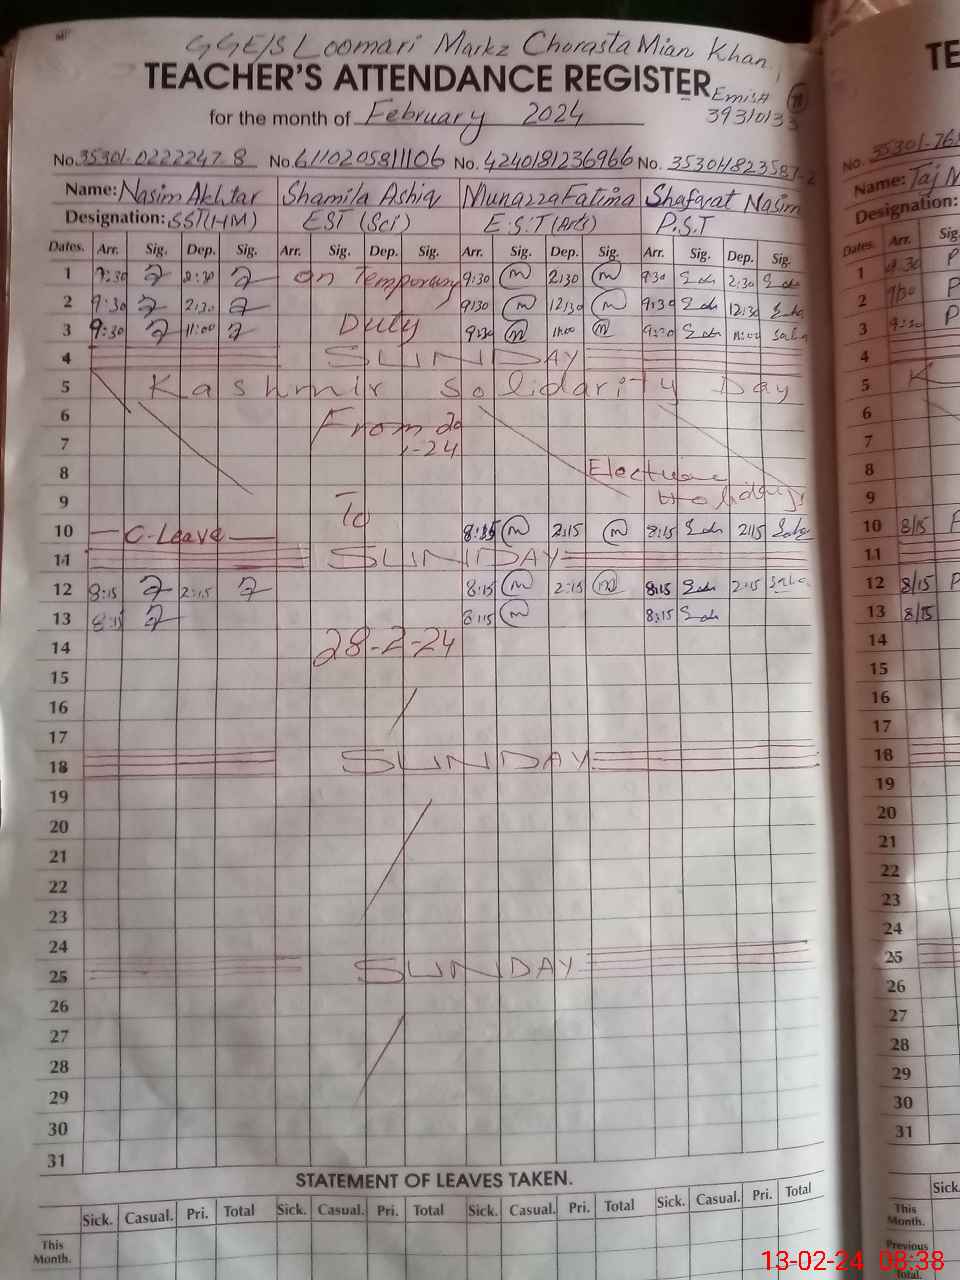 GGE/S Loomari Markz Chorasta Mian Khan
TEACHER'S ATTENDANCE REGISTER
Emis#
39310133
for the month of February 2024
No. 35301-0222247-8 No. 6110205811106 No. 4240181236966 No. No. 35301-
Name: Nasim Akhtar Shamila Ashiq Munazza Fatima Shafqat Nasim Name: Taj
Designation: SST(HM) EST (Sci) E.S.T (Arts) P.S.T Designation:
Dates. Arr. Sig. Dep. Sig. Arr. Sig. Dep. Sig. Arr. Sig. Dep. Sig. Arr. Sig. Dep. Sig. Dates. Arr. Sig.
1 9:30 2:30 on Temporary 9:30 m 2:30 m 9:30 2:30 1 9:30 P
2 9:30 2:30 9:30 m 12:30 m 9:30 12:30 2 9:30 P
3 9:30 11:00 Duty 9:30 m 11:00 m 9:30 11:00 Saba 3 9:30 P
4 SUNDAY 4
5 Kashmir Solidarity Day 5 K
6 From 20 6
7 -1-24 7
8 Elections 8
9 To Holidays 9
10 C-Leave 8:15 m 2:15 m 8:15 2:15 Saba 10 8/15
11 SUNDAY 11
12 8:15 2:15 8:15 m 2:15 m 8:15 2:15 Saba 12 8/15 P
13 8:15 8:15 m 8:15 13 8/15
14 28-2-24 14
15 15
16 16
17 17
18 SUNDAY 18
19 19
20 20
21 21
22 22
23 23
24 24
25 SUNDAY 25
26 26
27 27
28 28
29 29
30 30
31 31
STATEMENT OF LEAVES TAKEN.
Sick. Casual. Pri. Total Sick. Casual. Pri. Total Sick. Casual. Pri. Total Sick. Casual. Pri. Total Sick.
This Month. This Month.
Previous Total.
13-02-24 08:38